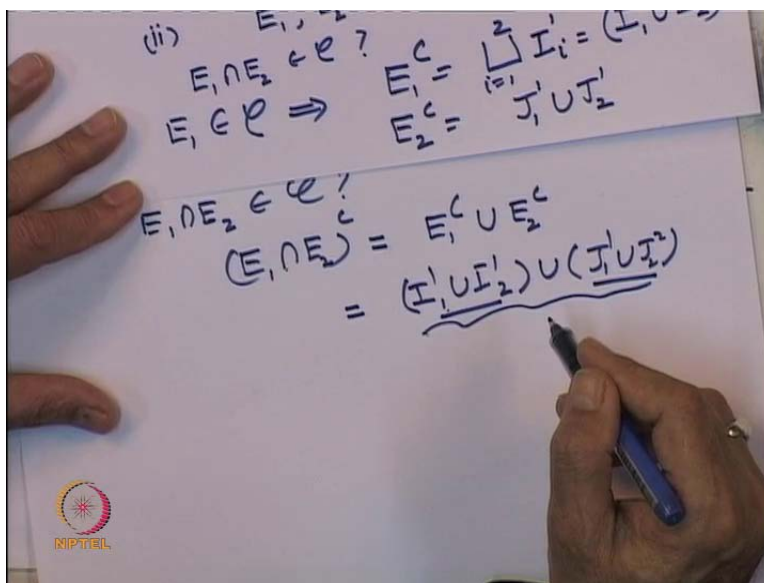 (ii) E₁, E₂
E₁ ∩ E₂ ∈ 𝒞 ?
E₁ ∈ 𝒞 ⇒ E₁ᶜ = ⨆_{i=1}^{2} I'ᵢ = (I₁ ∪ I₂)
E₂ᶜ = J'₁ ∪ J'₂
E₁ ∩ E₂ ∈ 𝒞 ?
(E₁ ∩ E₂)ᶜ = E₁ᶜ ∪ E₂ᶜ
= (I'₁ ∪ I'₂) ∪ (J'₁ ∪ J²₂)
NPTEL